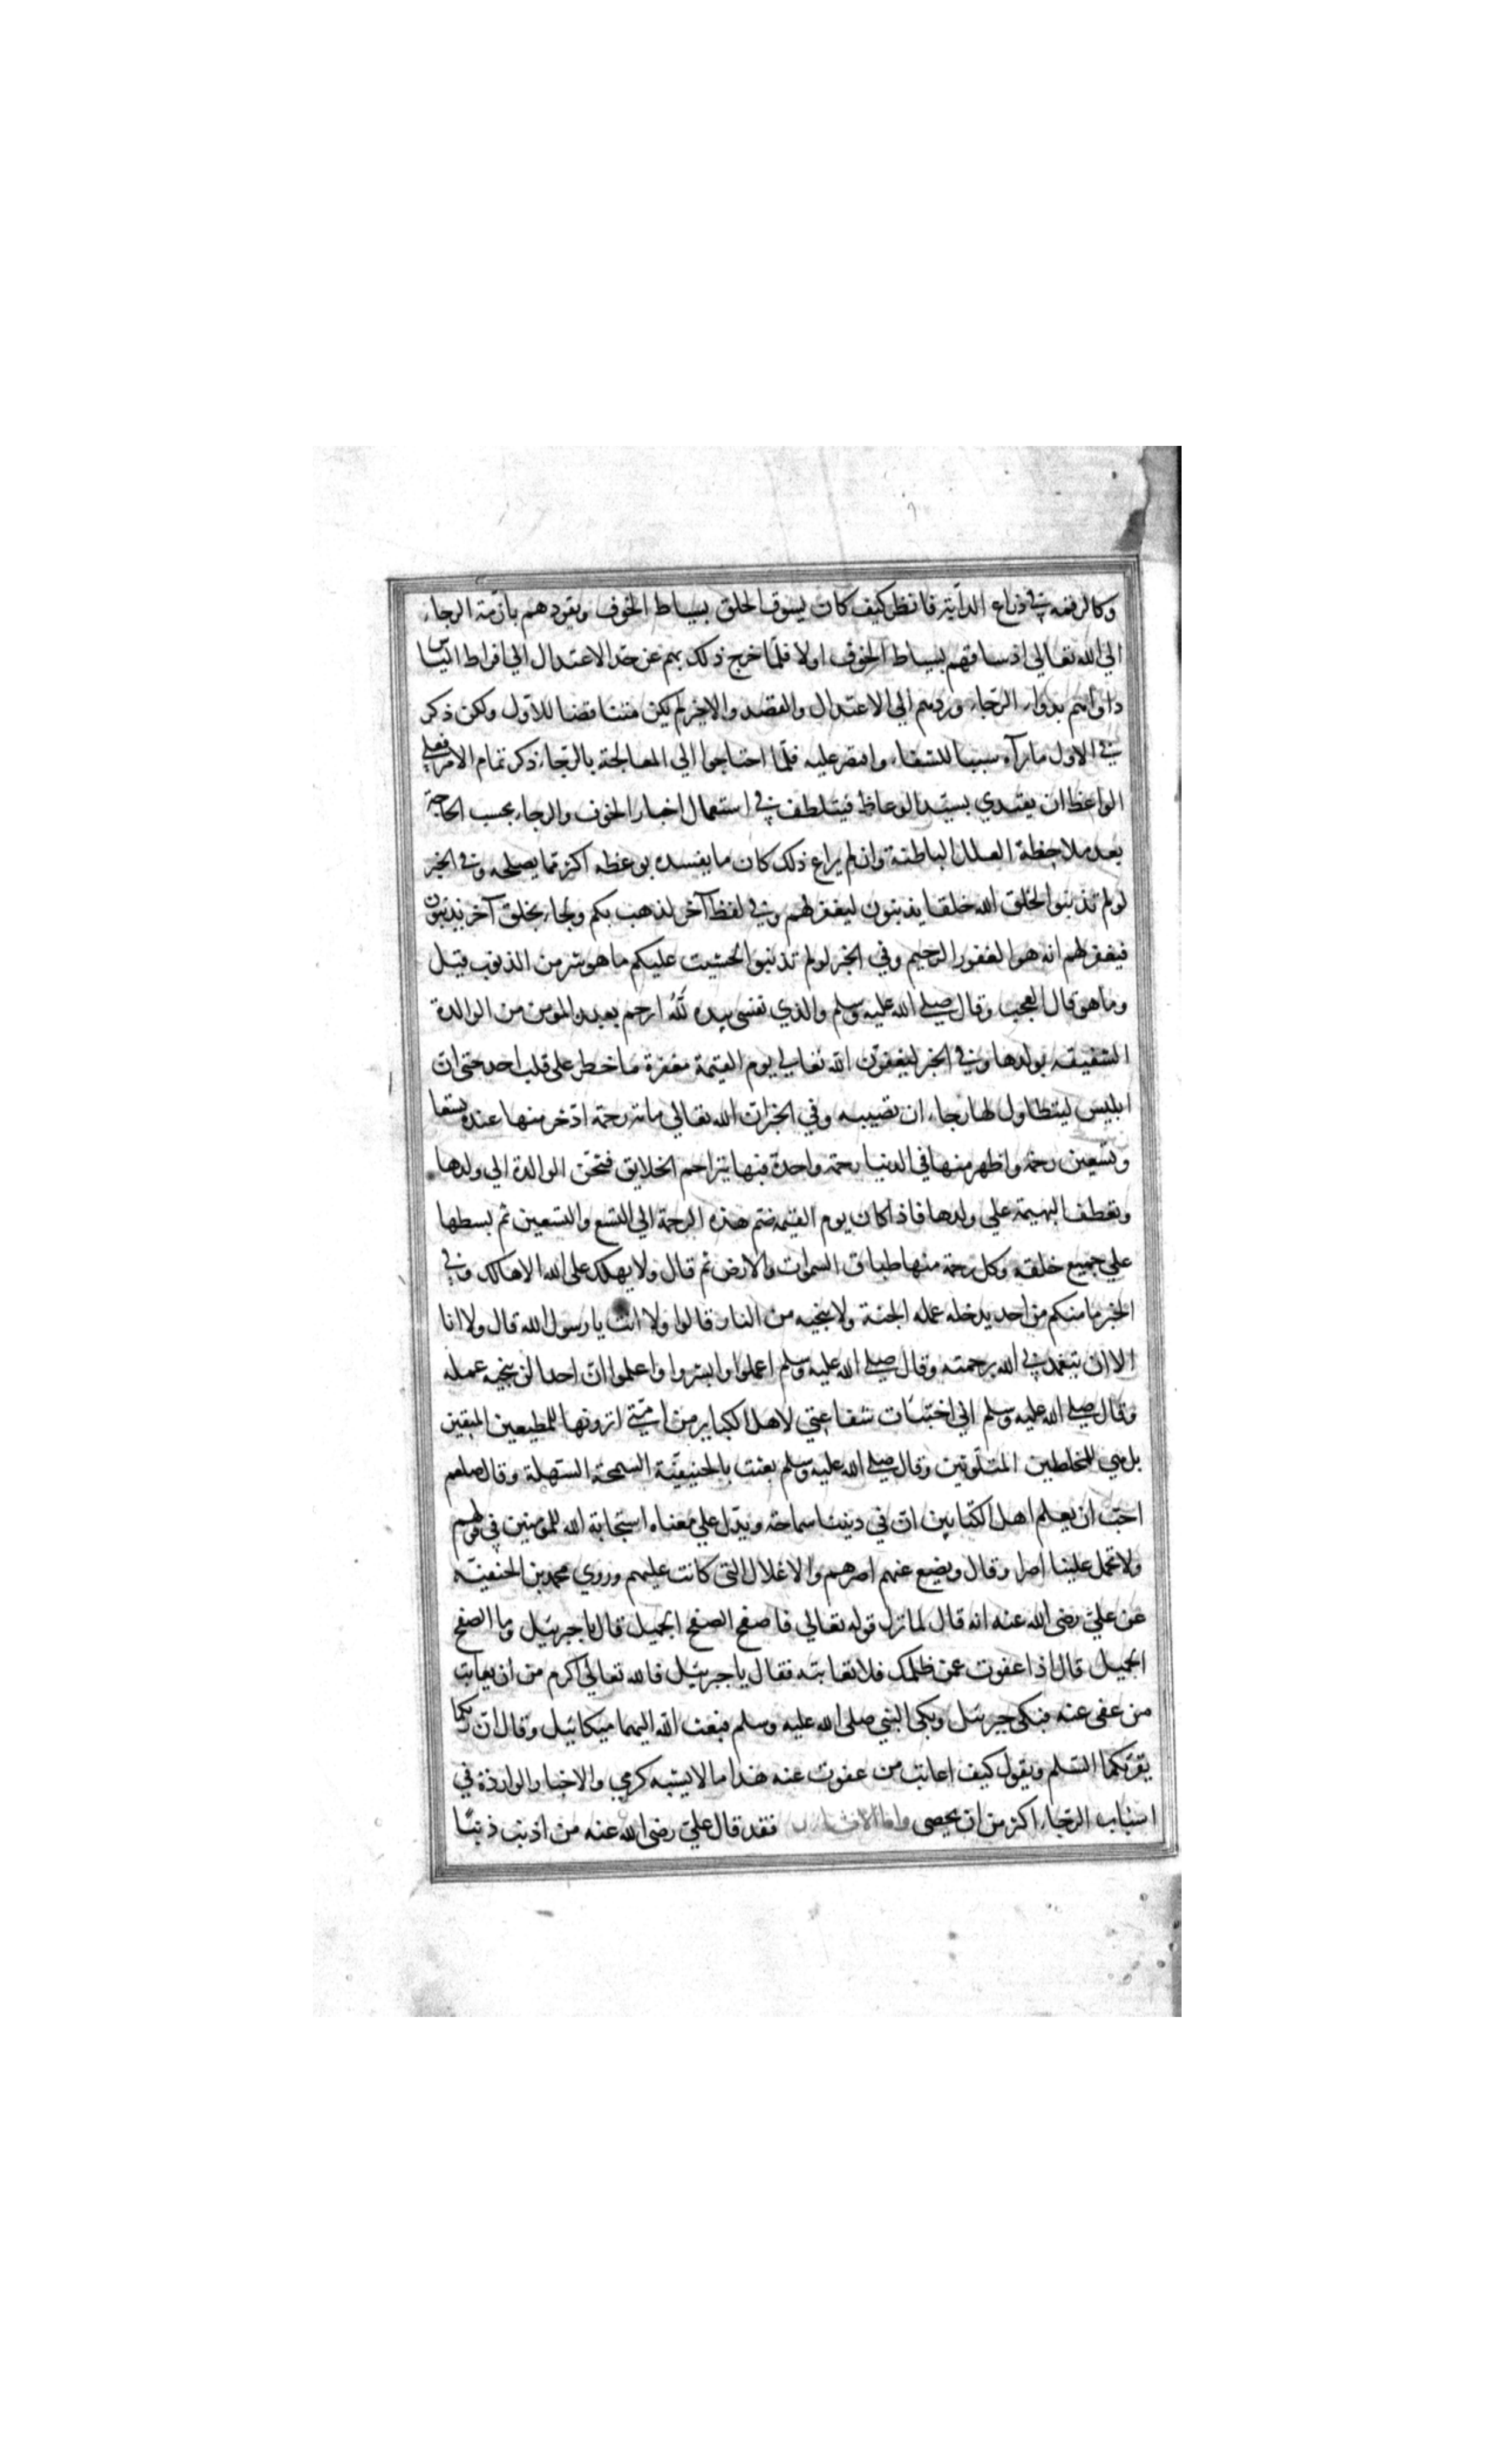 وكالرقمه في ذراع الدابة فانظر كيف كان يسوق الخلق بسياط الخوف ويقودهم بازمة الرجاء
الي الله تعالي اذ ساقهم بسياط الخوف اولا فلما خرج ذلك بهم عن حد الاعتدال الي افراط الياس
داواهم بدواء الرجاء وردهم الي الاعتدال والقصد والاخر لم يكن متناقضا للاول ولكن ذكر
في الاول ما رآه سببا للشفاء واقتصر عليه فلما احتاجوا الي المعالجة بالرجاء ذكر تمام الامر فعلي
الواعظ ان يقتدي بسيد الوعاظ فيتلطف في استعمال اخبار الخوف والرجاء بحسب الحاجة
بعد ملاحظة العلل الباطنة وان لم يراع ذلك كان ما يفسده بوعظه اكثر مما يصلحه وفي الخبر
لو لم تذنبوا لخلق الله خلقا يذنبون ليغفر لهم وفي لفظ آخر لذهب بكم وجاء بخلق آخر يذنبون
فيغفر لهم انه هو الغفور الرحيم وفي الخبر لو لم تذنبوا لخشيت عليكم ما هو شر من الذنوب قيل
وما هو قال العجب وقال صلي الله عليه وسلم والذي نفسي بيده لله ارحم بعبده المؤمن من الوالدة
الشفيقه بولدها وفي الخبر ليغفرن الله تعالي يوم القيمة مغفرة ما خطر على قلب احد حتى ان
ابليس ليتطاول لها رجاء ان تصيبه وفي الخبر ان الله تعالي مائة رحمة ادخر منها عنده تسعا
وتسعين رحمة واظهر منها في الدنيا رحمة واحدة فبها يتراحم الخلايق فتحن الوالدة الي ولدها
وتعطف البهيمة علي ولدها فاذا كان يوم القيمه ضم هذه الرحمة الي التسع والتسعين ثم بسطها
علي جميع خلقه وكل رحمة منها طباق السموات والارض ثم قال ولا يهلك على الله الا هالك وفي
الخبر ما منكم من احد يدخله عمله الجنة ولا ينجيه من النار قالوا ولا انت يا رسول الله قال ولا انا
الا ان يتغمدني الله برحمته وقال صلي الله عليه وسلم اعملوا وابشروا واعلموا ان احدا لن ينجيه عمله
وقال صلي الله عليه وسلم اني اختبات شفاعتي لاهل الكباير من امتي اترونها للمطيعين المتقين
بل هي للمخلطين المتلوثين وقال صلي الله عليه وسلم بعثت بالحنيفية السمحة السهلة وقال صلعم
احب ان يعلم اهل الكتابين ان في ديننا سماحة ويدل علي معناه استجابة الله للمؤمنين في قولهم
ولا تحمل علينا اصرا وقال ويضع عنهم اصرهم والاغلال التي كانت عليهم وروي محمد بن الحنفيه
عن علي رضى الله عنه انه قال لما نزل قوله تعالي فاصفح الصفح الجميل قال يا جبرئيل وما الصفح
الجميل قال اذا عفوت عمن ظلمك فلا تعاتبه فقال يا جبرئيل فالله تعالي اكرم من ان يعاتب
من عفى عنه فبكى جبرئيل وبكى النبي صلى الله عليه وسلم فبعث الله اليهما ميكائيل وقال ان ربكما
يقرئكما السلم ويقول كيف اعاتب من عفوت عنه هذا ما لا يشبه كرمي والاخبار الواردة في
اسباب الرجاء اكثر من ان يحصى واما الاثار فقد قال علي رضى الله عنه من اذنب ذنبا